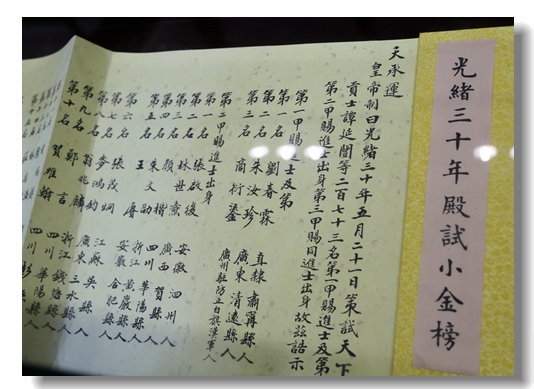 光緒三十年殿試小金榜
天承運
皇帝制曰光緒三十年五月二十一日策試天下
貢士譚延闓等二百七十三名第一甲賜進士及第
第二甲賜進士出身第三甲賜同進士出身故茲誥示
第一甲賜進士及第
第一名 劉春霖 直隸 肅寧縣人
第二名 朱汝珍 廣東 清遠縣人
第三名 商衍鎏 廣州駐防正白旗漢軍人
第二甲賜進士出身
第一名 張啟後 安徽 泗州人
第二名 林世燾 廣西 賀縣人
第三名 顏楷 四川 華陽縣人
第四名 朱文劭 浙江 黃巖縣人
第五名 王賡 安徽 合肥縣人
第六名 張茂炯 江蘇 吳縣人
第七名 麥鴻鈞 廣東 三水縣人
第八名 浙江 錢塘縣人
第九名 鄭言 四川 華陽縣人
第十名 賀維翰 四川